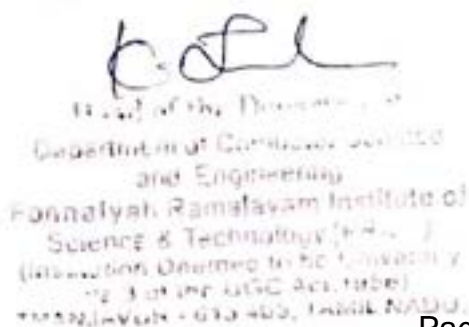 Head of the Department
Department of Computer Science
and Engineering
Ponnaiyah Ramajayam Institute of
Science & Technology (PRIST)
(Institution Deemed to be University
u/s 3 of the UGC Act, 1956)
THANJAVUR - 613 403, TAMIL NADU
Pag